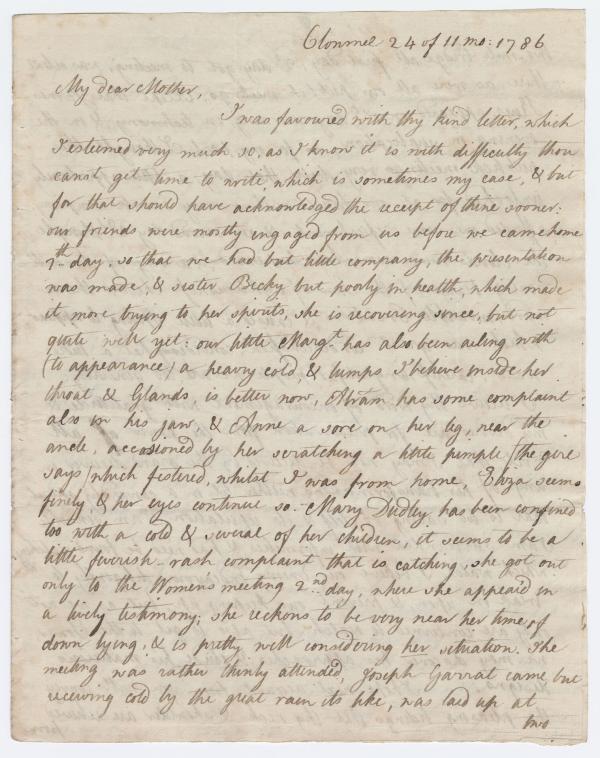 Clonmel 24 of 11 mo: 1786
My dear Mother,
I was favoured with thy kind letter, which
I esteemed very much so, as I know it is with difficulty thou
canst get time to write, which is sometimes my case, & but
for that should have acknowledged the receipt of thine sooner:
our friends were mostly engaged from us before we came home
7th day, so that we had but little company, the presentation
was made, & sister Becky but poorly in health, which made
it more trying to her spirits, she is recovering since, but not
quite well yet: our little Margt. has also been ailing with
(to appearance) a heavy cold, & lumps I believe inside her
throat & Glands, is better now, Abram has some complaint
also in his jaw, & Anne a sore on her leg, near the
ancle, accosioned by her scratching a little pimple (the girl
says) which festered, whilst I was from home, Eliza seems
finely, & her eyes continue so. Mary Dudley has been confined
too with a cold & several of her children, it seems to be a
little feverish-rash complaint that is catching, she got out
only to the Women's meeting 2nd day, where she appeard in
a lively testimony; she reckons to be very near her time of
down lying, & is pretty well considering her situation. The
meeting was rather thinly attended, Joseph Garrat came, but
receiving cold by the great rain its like, was laid up at
two